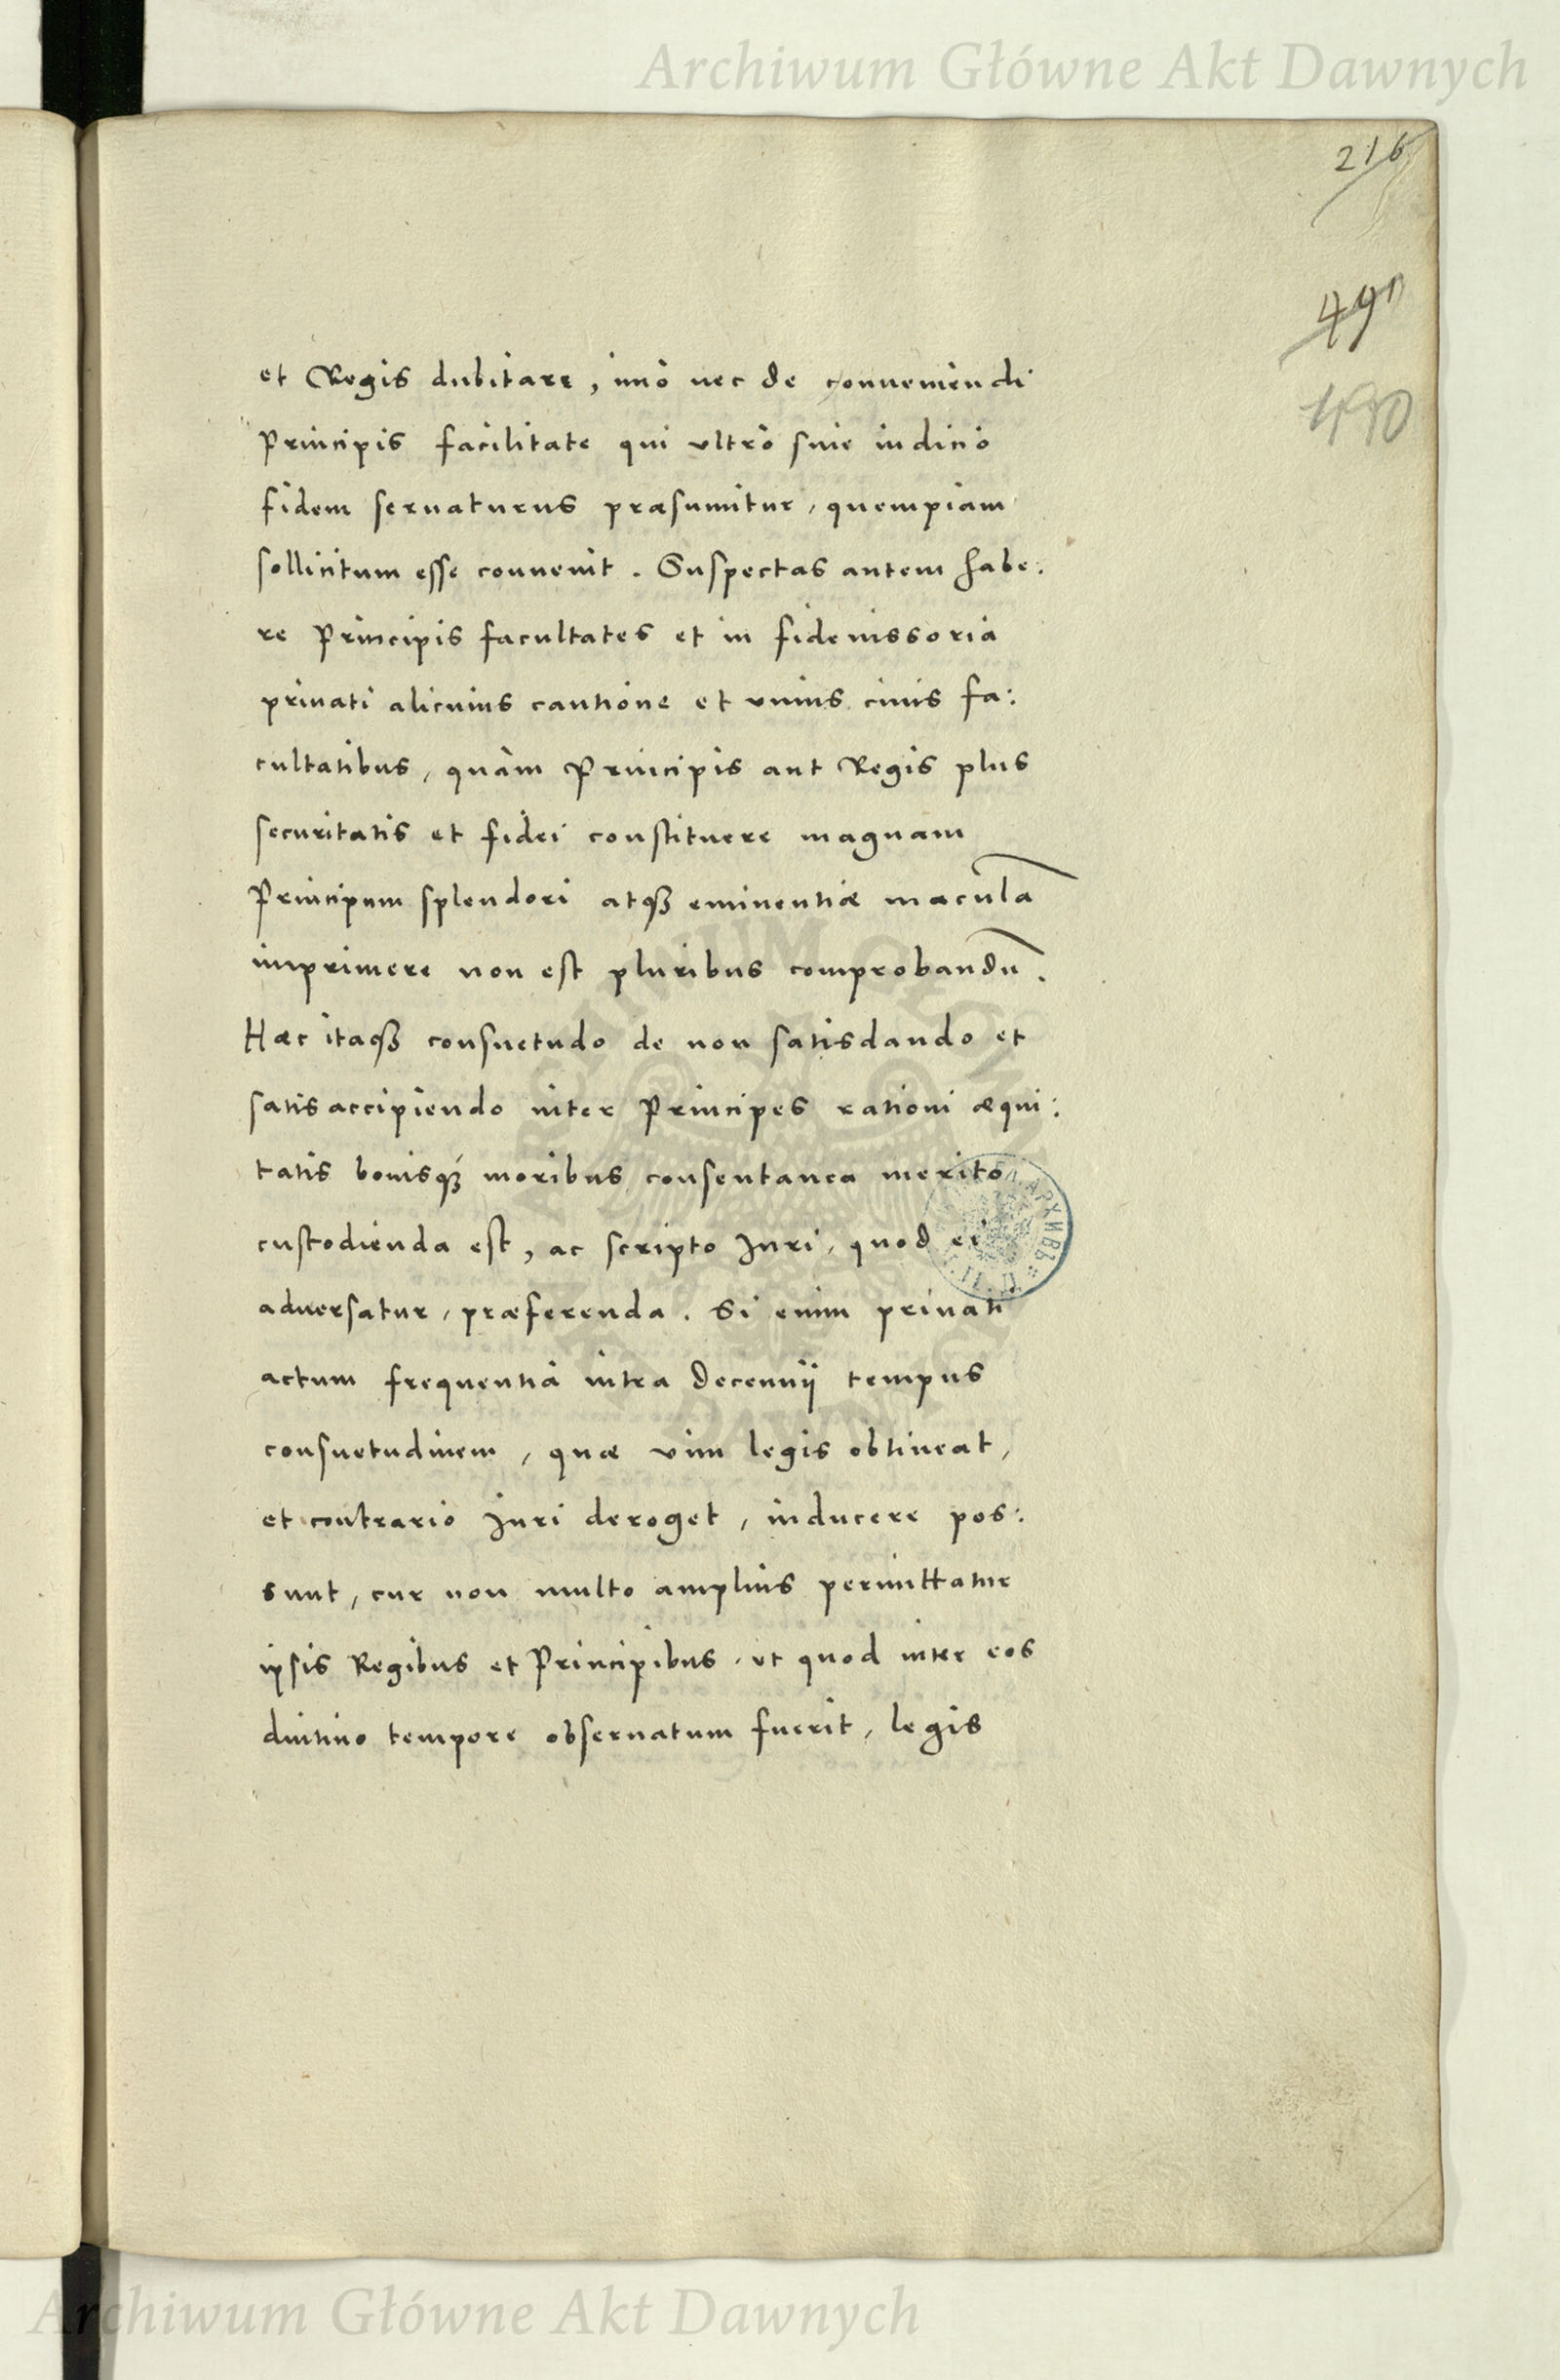 Archiwum Główne Akt Dawnych
216
490
490
et Regis dubitare, imò nec de conueniendi
Principis facilitate qui vltrò sine iudicio
fidem seruaturus præsumitur, quempiam
sollicitum esse conuenit. Suspectas autem habe:
re Principis facultates et in fideiussoria
priuati alicuius cautione et vnius ciuis fa:
cultatibus, quàm Principis aut Regis plus
securitatis et fidei constituere magnam
Principum splendori atqꝫ eminentiæ maculā
imprimere non est pluribus comprobandū.
Hæc itaqꝫ consuetudo de non satisdando et
satisaccipiendo inter Principes rationi æqui:
tatis bonisqꝫ moribus consentanea merito
custodienda est, ac scripto Juri, quod ei
aduersatur, præferenda. Si enim priuati
actum frequentia intra decennij tempus
consuetudinem, quæ vim legis obtineat,
et contrario Juri deroget, inducere pos:
sunt, cur non multo amplius permittatur
ipsis Regibus et Principibus, vt quod inter eos
diutino tempore obseruatum fuerit, legis
Archiwum Główne Akt Dawnych